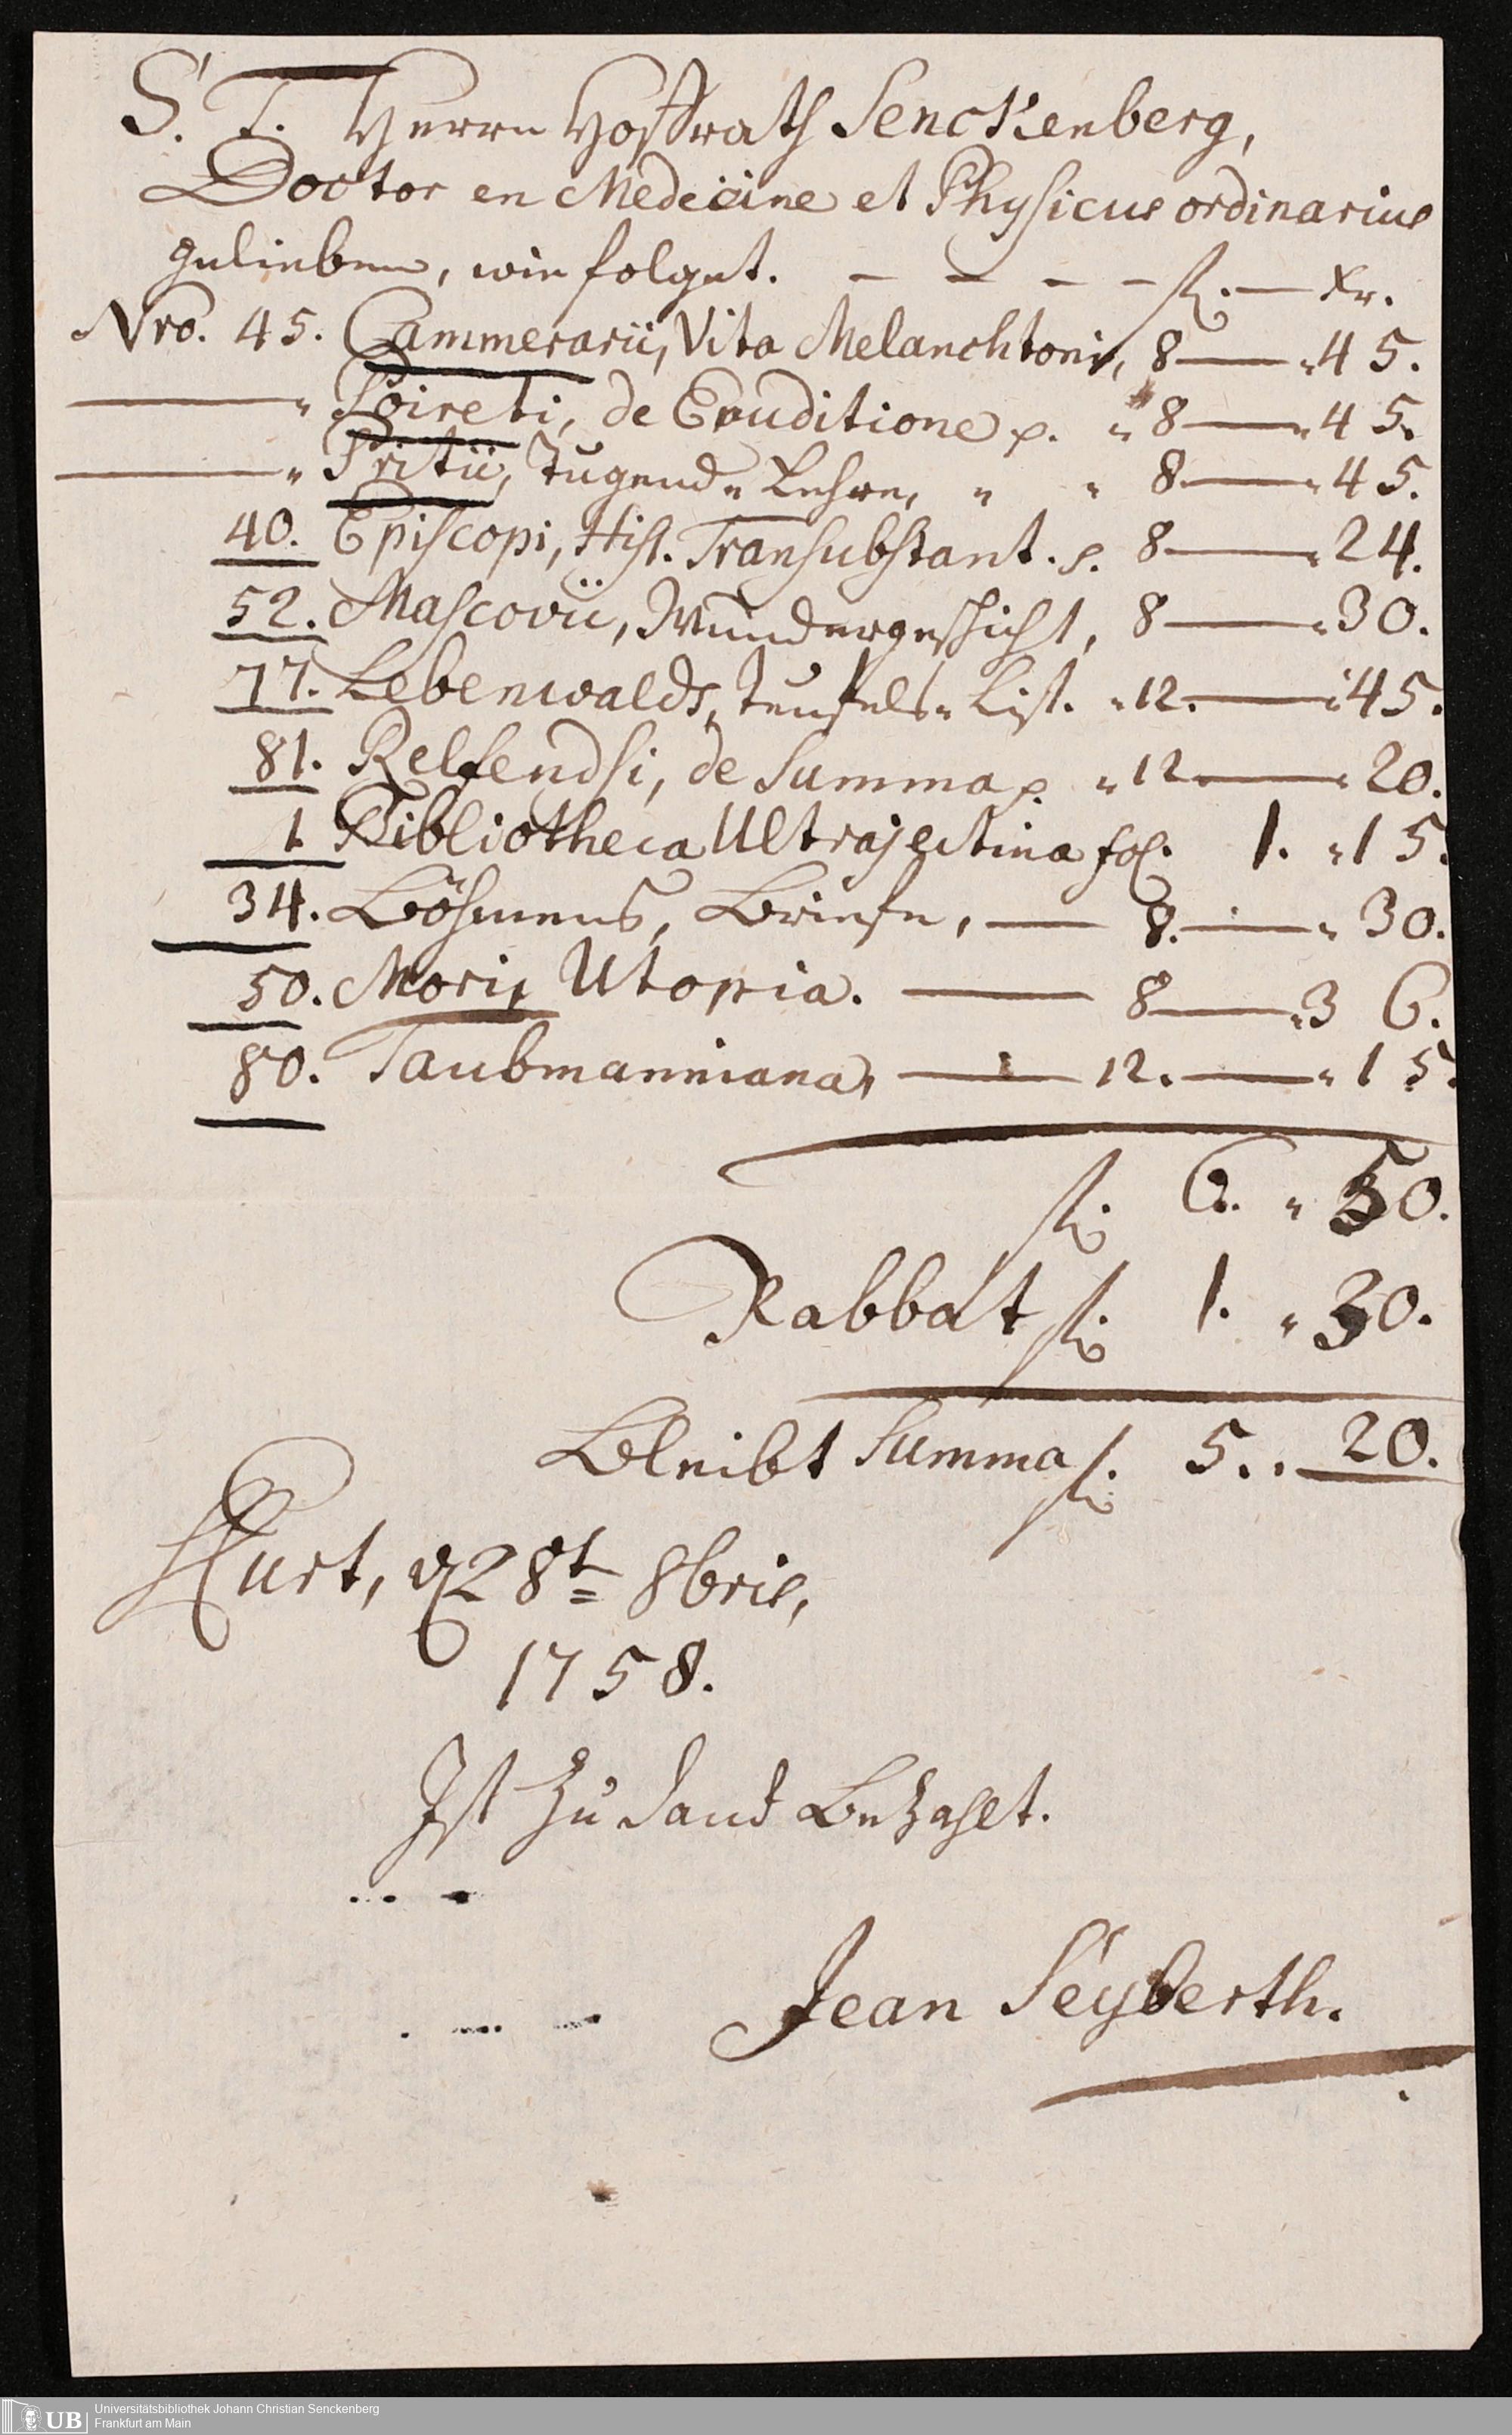 S. T. Herrn Hoffrath Senckenberg,
Doctor en Medecine et Physicus ordinarius
gelieben, wie folget. — — — — fl. — Xr.
Nro. 45. Cammerarii, Vita Melanchtonis, 8 — „ 45.
— „ Poireti, de Eruditione p. „ 8 — „ 45.
— „ Pritii, Tugend„ Lehre, „ „ 8 — „ 45.
40. Episcopi, Hist. Transubstant. p. 8 — „ 24.
52. Mascovii, Wundergeschicht, 8 — „ 30.
77. Lebenwalds, Teufels„ List. „ 12. — „ 45.
81. Relfendsi, de Summa p. „ 12 — „ 20.
1. Bibliotheca Ultrajectina fol. 1. „ 15.
34. Böhmens, Briefe, — 8. — „ 30.
50. Mori, Utopia. — 8 — „ 36.
80. Taubmanniana, — 12. — „ 15.
fl. 6. „ 50.
Rabbat fl. 1. „ 30.
Bleibt Summa fl. 5. „ 20.
Ffurt, d 28t 8bris,
1758.
Ist zu Dand Bezahlt.
Jean Seyberth.
UB
Universitätsbibliothek Johann Christian Senckenberg
Frankfurt am Main